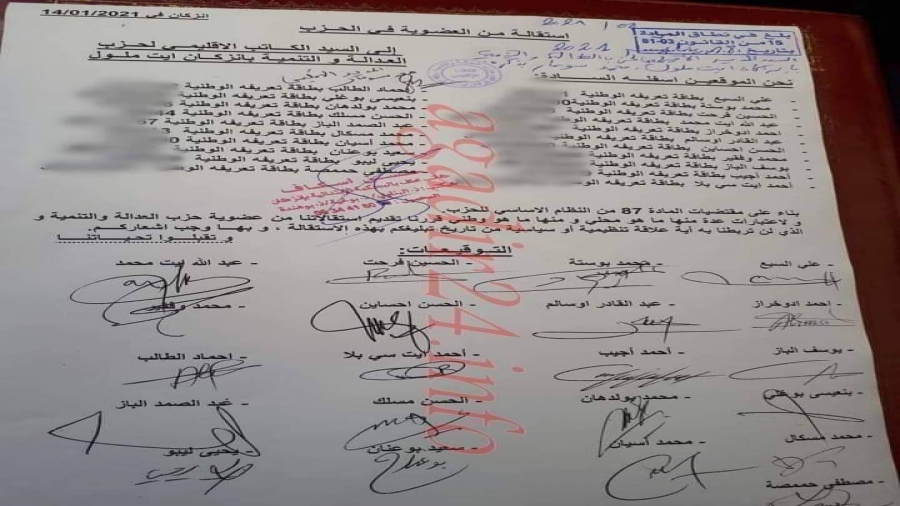 انزكان في 14/01/2021
استقالة من العضوية في الحزب
بلغ في نطاق المادة
15 من القانون 03-81
إلى السيد الكاتب الاقليمي لحزب
العدالة و التنمية بانزكان ايت ملول
نحن الموقعين اسفله السادة:
- علي السبع بطاقة تعريفه الوطنية
- محمد بوستة بطاقة تعريفه الوطنية
- الحسين فرحت بطاقة تعريفه الوطنية
- عبد الله ايت
- احمد ادوخراز بطاقة تعريفه
- عبد القادر اوسالم
- الحسن احساين بطاقة تعريفه
- محمد وفقير بطاقة تعريفه
- يوسف الباز بطاقة تعريفه
- أحمد أجيب بطاقة تعريفه
- أحمد ايت سي بلا بطاقة تعريفه
- إحماد الطالب بطاقة تعريفه الوطنية
- بنعيسى بوغلي بطاقة تعريفه الوطنية
- محمد بولدهان بطاقة تعريفه الوطنية
- الحسن مسلك بطاقة تعريفه الوطنية
- عبد الصمد الباز بطاقة تعريفه الوطنية
- محمد مسكال بطاقة تعريفه الوطنية
- محمد أسيان بطاقة تعريفه الوطنية
- سعيد بوعنان بطاقة تعريفه الوطنية
- يحيى ليبو بطاقة تعريفه الوطنية
- مصطفى حممصة بطاقة تعريفه الوطنية
بناء على مقتضيات المادة 87 من النظام الاساسي للحزب.
و لاعتبارات عدة منها ما هو محلي و منها ما هو وطني قررنا تقديم استقالتنا من عضوية حزب العدالة والتنمية و
الذي لن تربطنا به أية علاقة تنظيمية أو سياسية من تاريخ تبليغكم بهذه الاستقالة ، و بها وجب اشعاركم.
و تقبلوا تحياتنا
التوقيعات:
- علي السبع - محمد بوستة - الحسين فرحت - عبد الله ايت محمد
- احمد ادوخراز - عبد القادر اوسالم - الحسن احساين - محمد وفقير
- يوسف الباز - أحمد أجيب - أحمد ايت سي بلا - إحماد الطالب
- بنعيسى بوغلي - محمد بولدهان - الحسن مسلك - عبد الصمد الباز
- محمد مسكال - محمد أسيان - سعيد بوعنان - يحيى ليبو
- مصطفى حممصة
agadir24.info